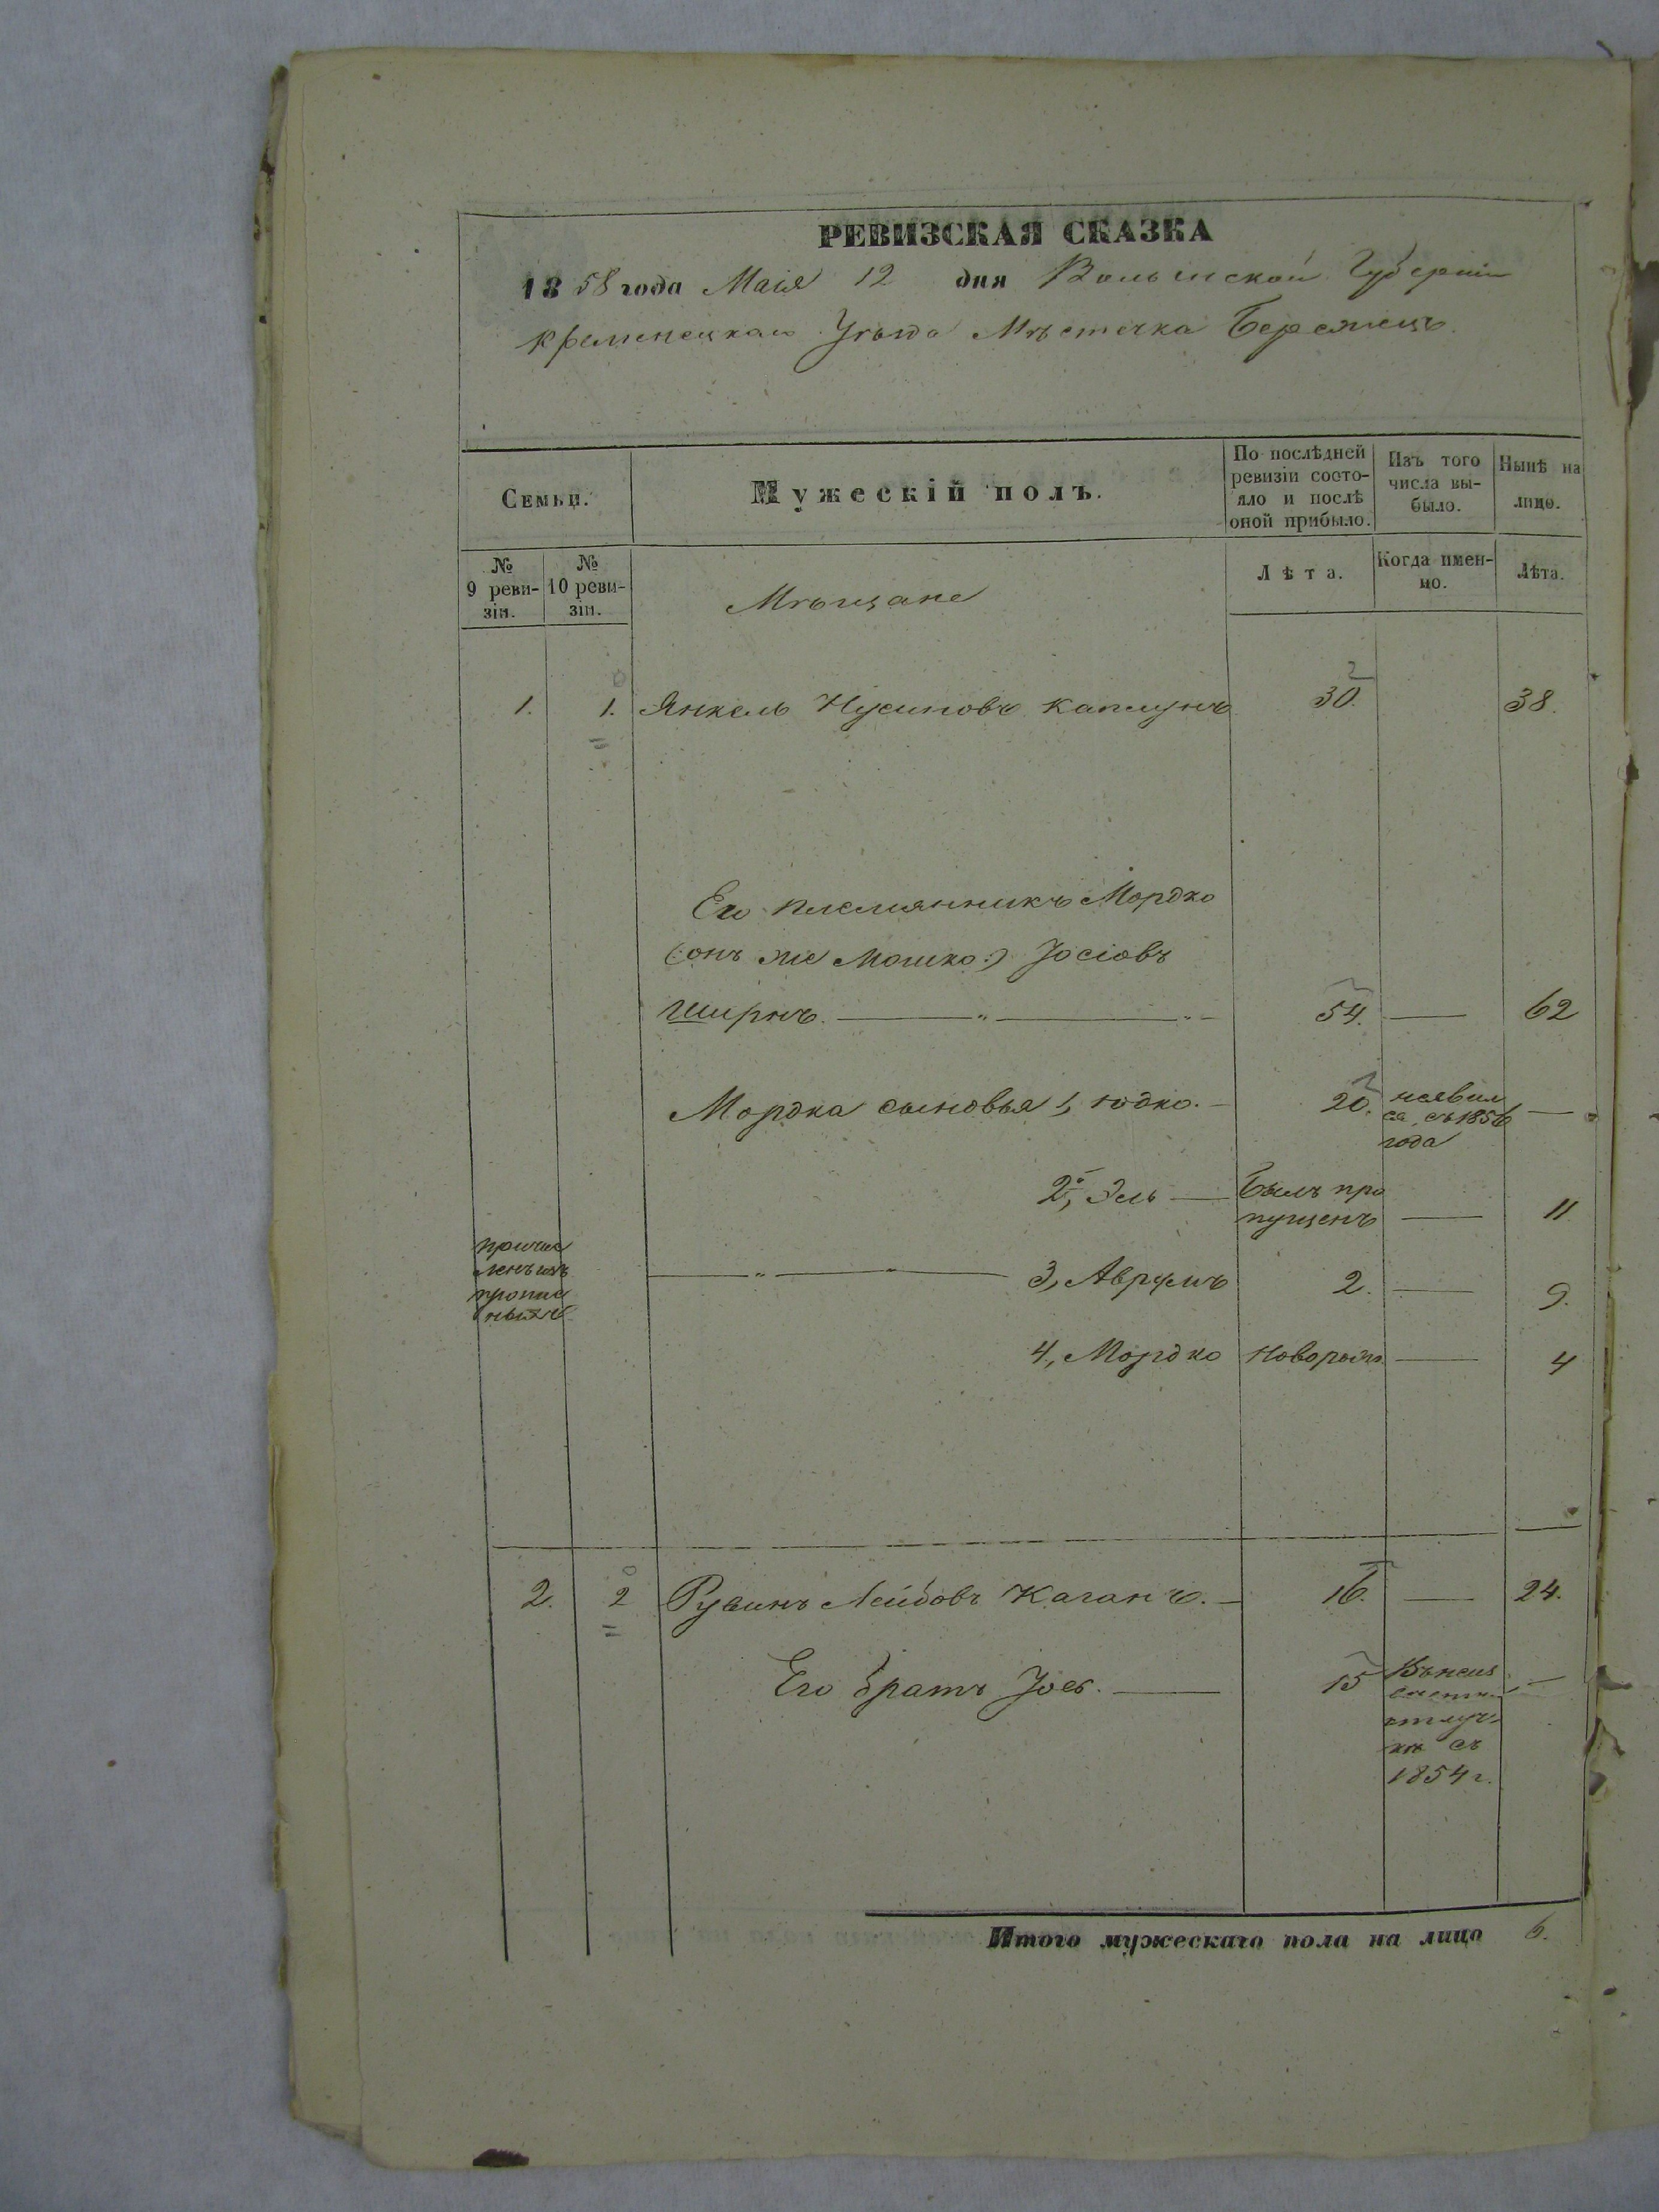 РЕВИЗСКАЯ СКАЗКА
1858 года Маія 12 дня Волынской Губерніи
Кременецкаго Уѣзда Мѣстечка Бережецъ.
Семьи.
Мужескій полъ.
По послѣдней
ревизіи состо-
яло и послѣ
оной прибыло.
Изъ того
числа вы-
было.
Нынѣ на
лицо.
№
9 реви-
зіи.
№
10 реви-
зіи.
Мѣщане
Лѣта.
Когда имен-
но.
Лѣта.
1. 1. Янкель Нусимовъ Каплунъ 30. 38.
Его племянникъ Мордко
(:онъ же Мошко:) Іосіовъ
54. — 62
Мордка сыновья 1, Юдко. — 20. неявил
ся съ 1856 —
года
2, Эль — Былъ про
пущенъ — 11
причис
ленъ изъ
3, Аврумъ 2. — 9.
4, Мордко Новорож. — 4
2. 2 Рувинъ Лейбовъ Каганъ. — 16. — 24.
Его братъ Іось. — 15
отлуч
кѣ съ
1854 г.
Итого мужескаго пола на лицо 6.